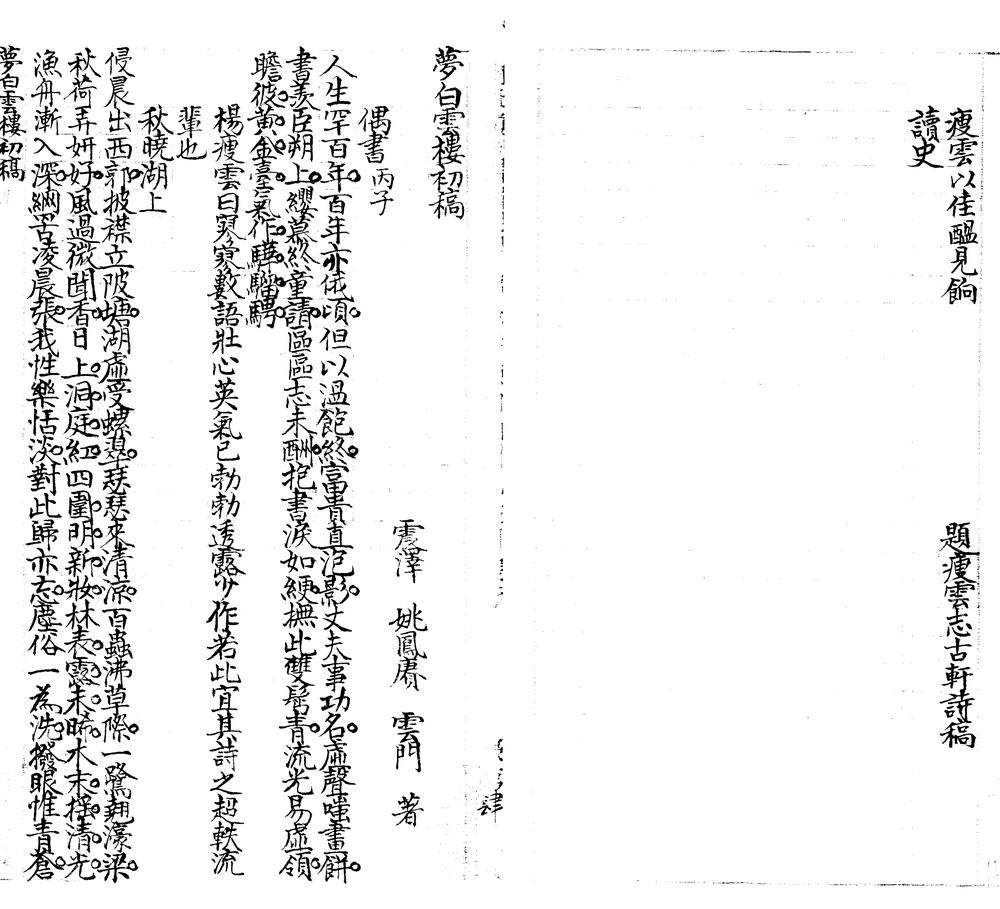 瘦雲以佳醞見餉　題瘦雲志古軒詩稿
讀史
夢白雲樓初稿
震澤　姚鳳賡　雲門　著
偶書丙子
人生罕百年百年亦俄頃但以溫飽終富貴直泡影丈夫事功名虛聲嗤畫餅
書羨臣朔上纓慕終童請區區志未酬抱書淚如綆撫此雙鬢青流光易虛領
瞻彼黃金臺氣作驊騮騁
楊瘦雲曰寥寥數語壯心英氣已勃勃透露少作若此宜其詩之超軼流
輩也
秋曉湖上
侵晨出西郭披襟立陂塘湖虛受螺翠瑟瑟來清涼百蟲沸草際一鷺翹濠梁
秋荷弄妍好風過微聞香日上洞庭紅四圍明新妝林表露未晞木末搖清光
漁舟漸入深網罟凌晨張我性樂恬淡對此歸亦忘塵俗一為洗撥眼惟青蒼
夢白雲樓初稿